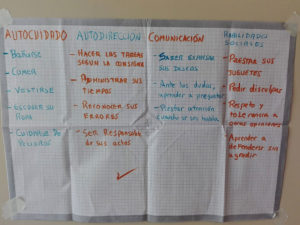 AUTOCUIDADO
- Bañarse
- Comer
- Vestirse
- Escoger su
ropa
- Cuidarse de
peligros
AUTODIRECCIÓN
- HACER LAS TAREAS
SEGÚN LA CONSIGNA
- Administrar sus
tiempos
- Reconocer sus
ERRORES
- Ser Responsable
de sus actos
COMUNICACIÓN
- SABER EXPRESAR
SUS DESEOS
- Ante las dudas,
aprender a preguntar
- Prestar atención
cuando se les habla
HABILIDADES
SOCIALES
- PRESTAR SUS
JUGUETES
- Pedir disculpas
- Respeto y
tolerancia a
otras opiniones
- Aprender a
defenderse sin
agredir